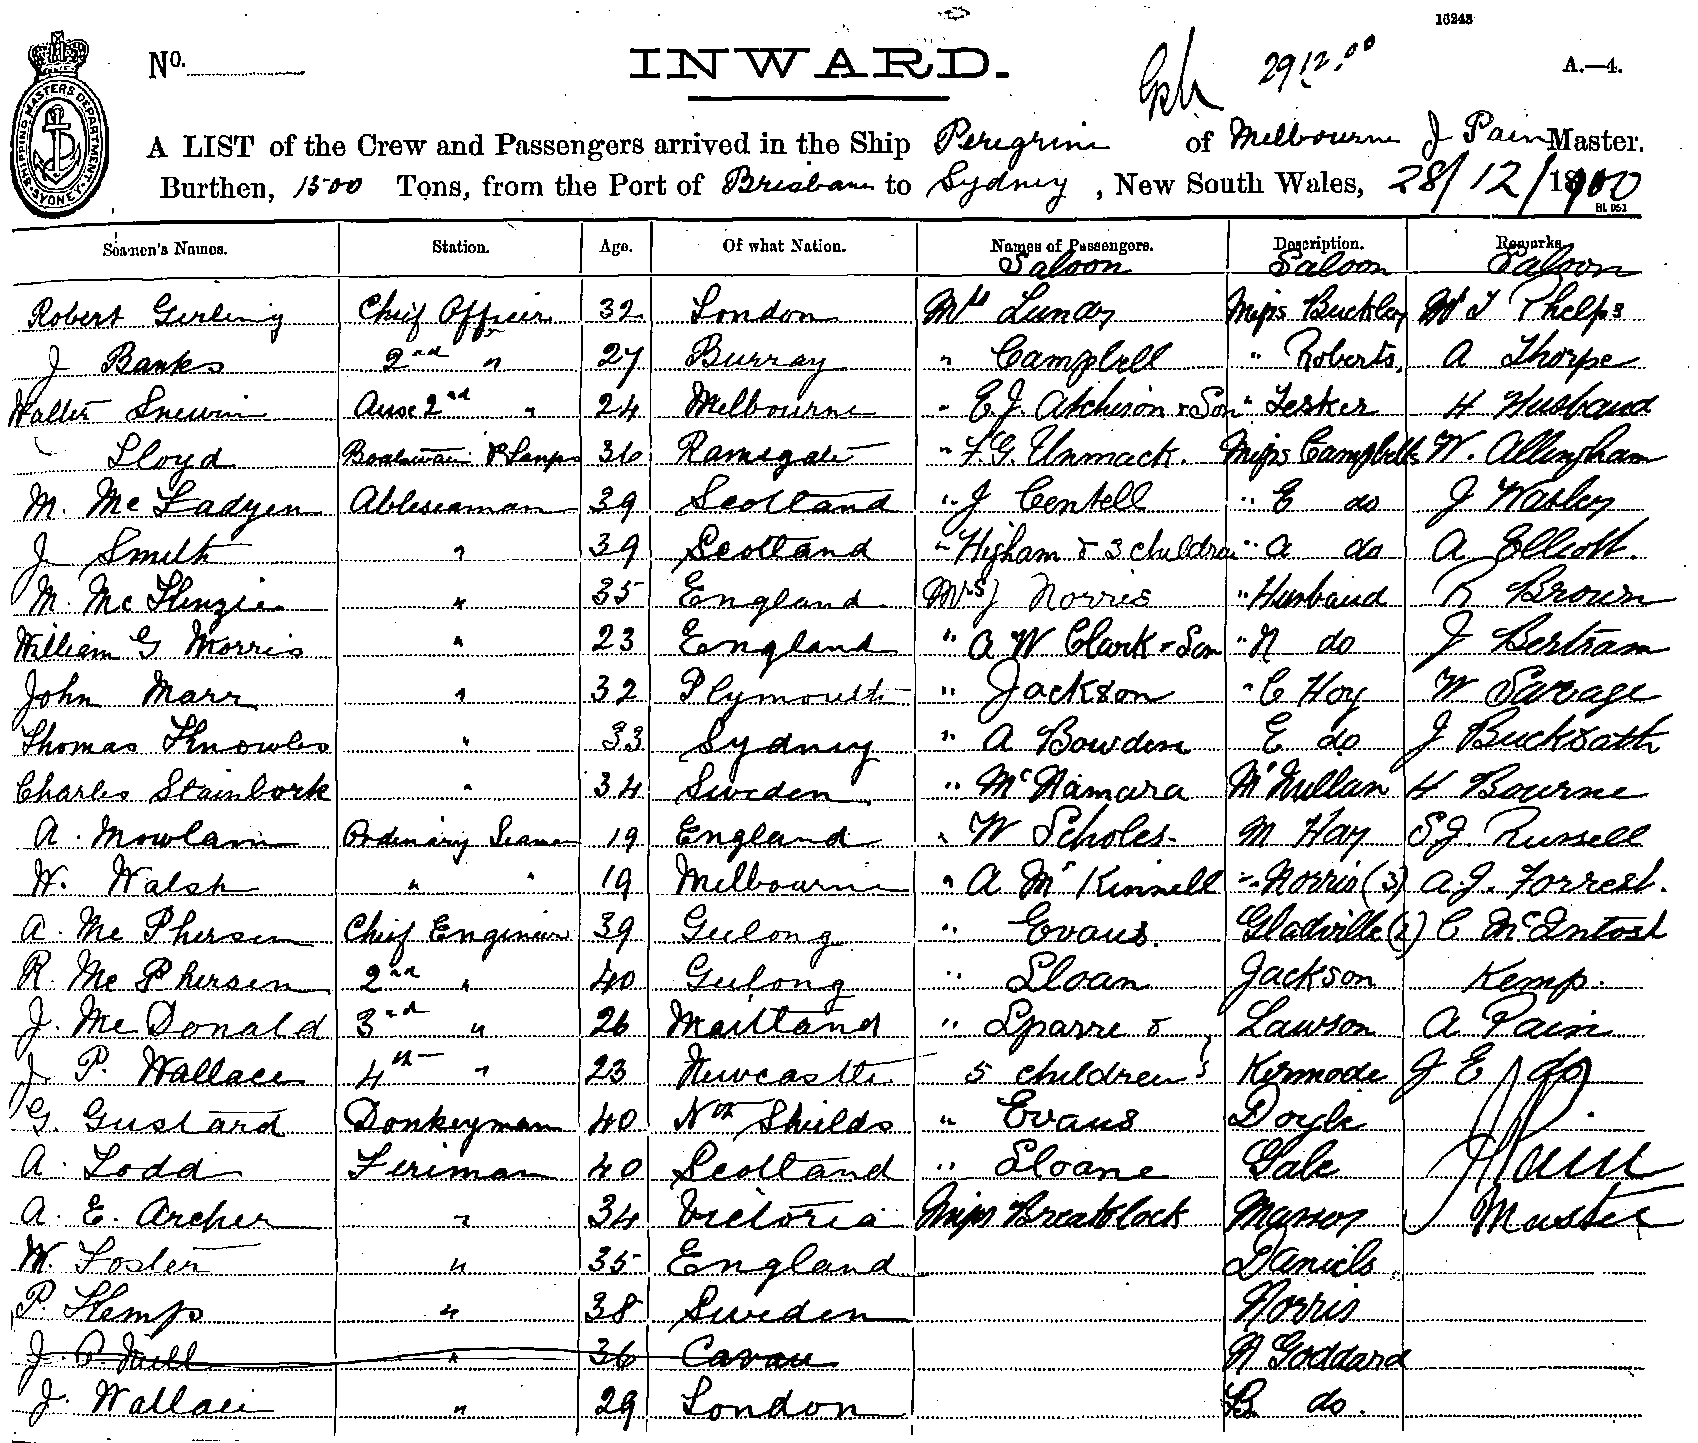 16243
No. INWARD. 29.12.00 A.—4.
SHIPPING MASTERS DEPARTMENT SYDNEY
A LIST of the Crew and Passengers arrived in the Ship Peregrine of Melbourne J Pain Master.
Burthen, 1500 Tons, from the Port of Brisbane to Sydney, New South Wales, 28/12/1900
Seamen's Names. Station. Age. Of what Nation. Names of Passengers. Description. Remarks.
Saloon Saloon Saloon
Robert Girling Chief Officer 32 London Mrs Lundy Miss Buckley Mr T Phelps
J Banks 2nd " 27 Burray " Campbell " Roberts, A Thorpe
Walter Snewin 2nd " 24 Melbourne " E.J. Atchison & Son " Lesker H Husband
Lloyd Boatswain & Lamps 36 Ramsgate " F.G. Unmack. Miss Campbell W. Allingham
M. McFadyen Ableseaman 39 Scotland " J Centell " E do J Wasley
J Smith " 39 Scotland " Higham & 3 children " A do A Elliott.
M. McKenzie " 35 England Mrs J Norris " Husband R Brown
William G Morris " 23 England " A W Clark & Son " N do J Bertram
John Marr " 32 Plymouth " Jackson " C Hoy W Savage
Thomas Knowles " 33 Sydney " A Bowden E do J Buckrath
Charles Stainbork " 34 Sweden " McNamara McMullan H Bourne
A. Mowlam Ordinary Seaman 19 England " W Scholes M Hay S.J. Russell
W. Walsh " " 19 Melbourne " A McKinnell " Norris (3) A.J. Forrest.
A. McPherson Chief Engineer 39 Geelong " Evans. Gladville (2) C McIntosh
R. McPherson 2nd " 40 Geelong " Sloan Jackson Kemp.
J. McDonald 3rd " 26 Maitland " Sparre & Lawson A Pain
J P. Wallace 4th " 23 Newcastle 5 children Kermode J E do
G. Gustard Donkeyman 40 Nth Shields " Evans Doyle
A. Todd Fireman 40 Scotland " Sloane Gale J Pain
A. E. Archer " 34 Victoria Miss Breaklock Massey Master
W. Foster " 35 England Daniels
P. Kemps " 38 Sweden Norris
J. P. Neill " 36 Cavan A Goddard
J. Wallace " 29 London B do.